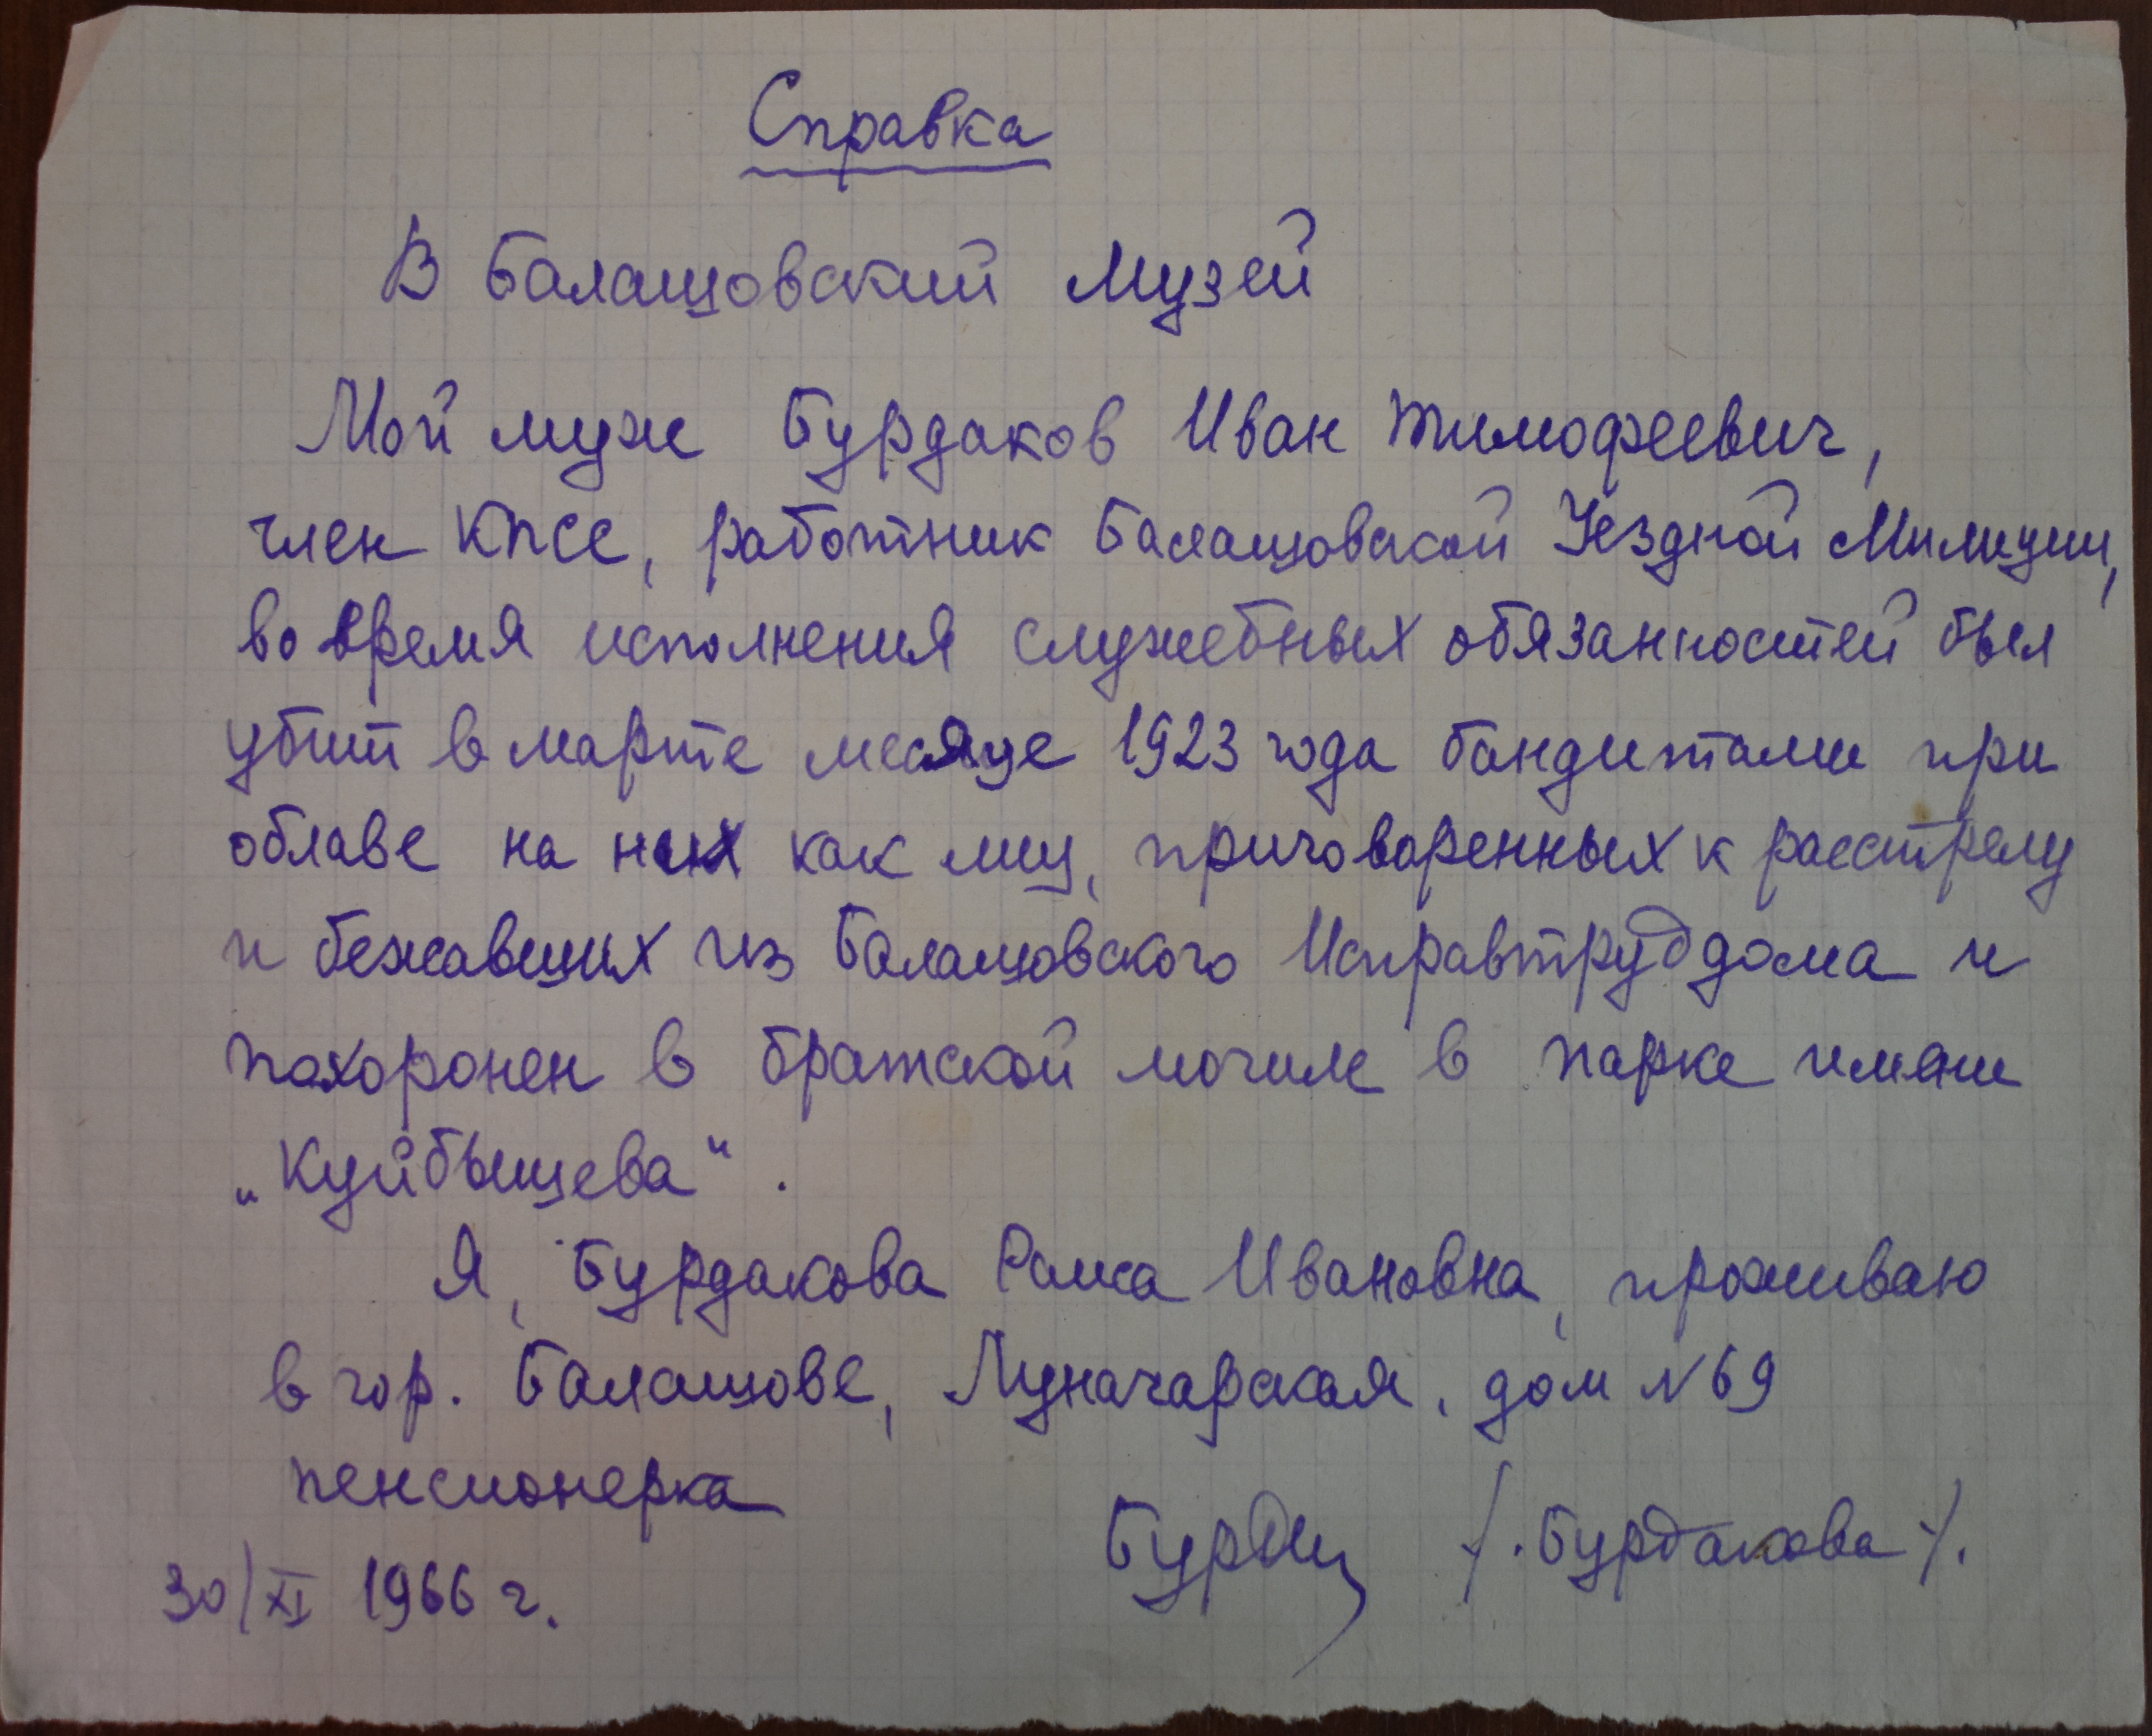 Справка
В Балашовский Музей
Мой муж Бурдаков Иван Тимофеевич,
член КПСС, работник Балашовской Уездной Милиции,
во время исполнения служебных обязанностей был
убит в марте месяце 1923 года бандитами при
облаве на них как лиц, приговоренных к расстрелу
и бежавших из Балашовского Исправтруддома и
похоронен в братской могиле в парке имени
„Куйбышева“.
Я, Бурдакова Раиса Ивановна, проживаю
в гор. Балашове, Луначарская, дом N 69
пенсионерка
/. Бурдакова /.
30/XI 1966 г.